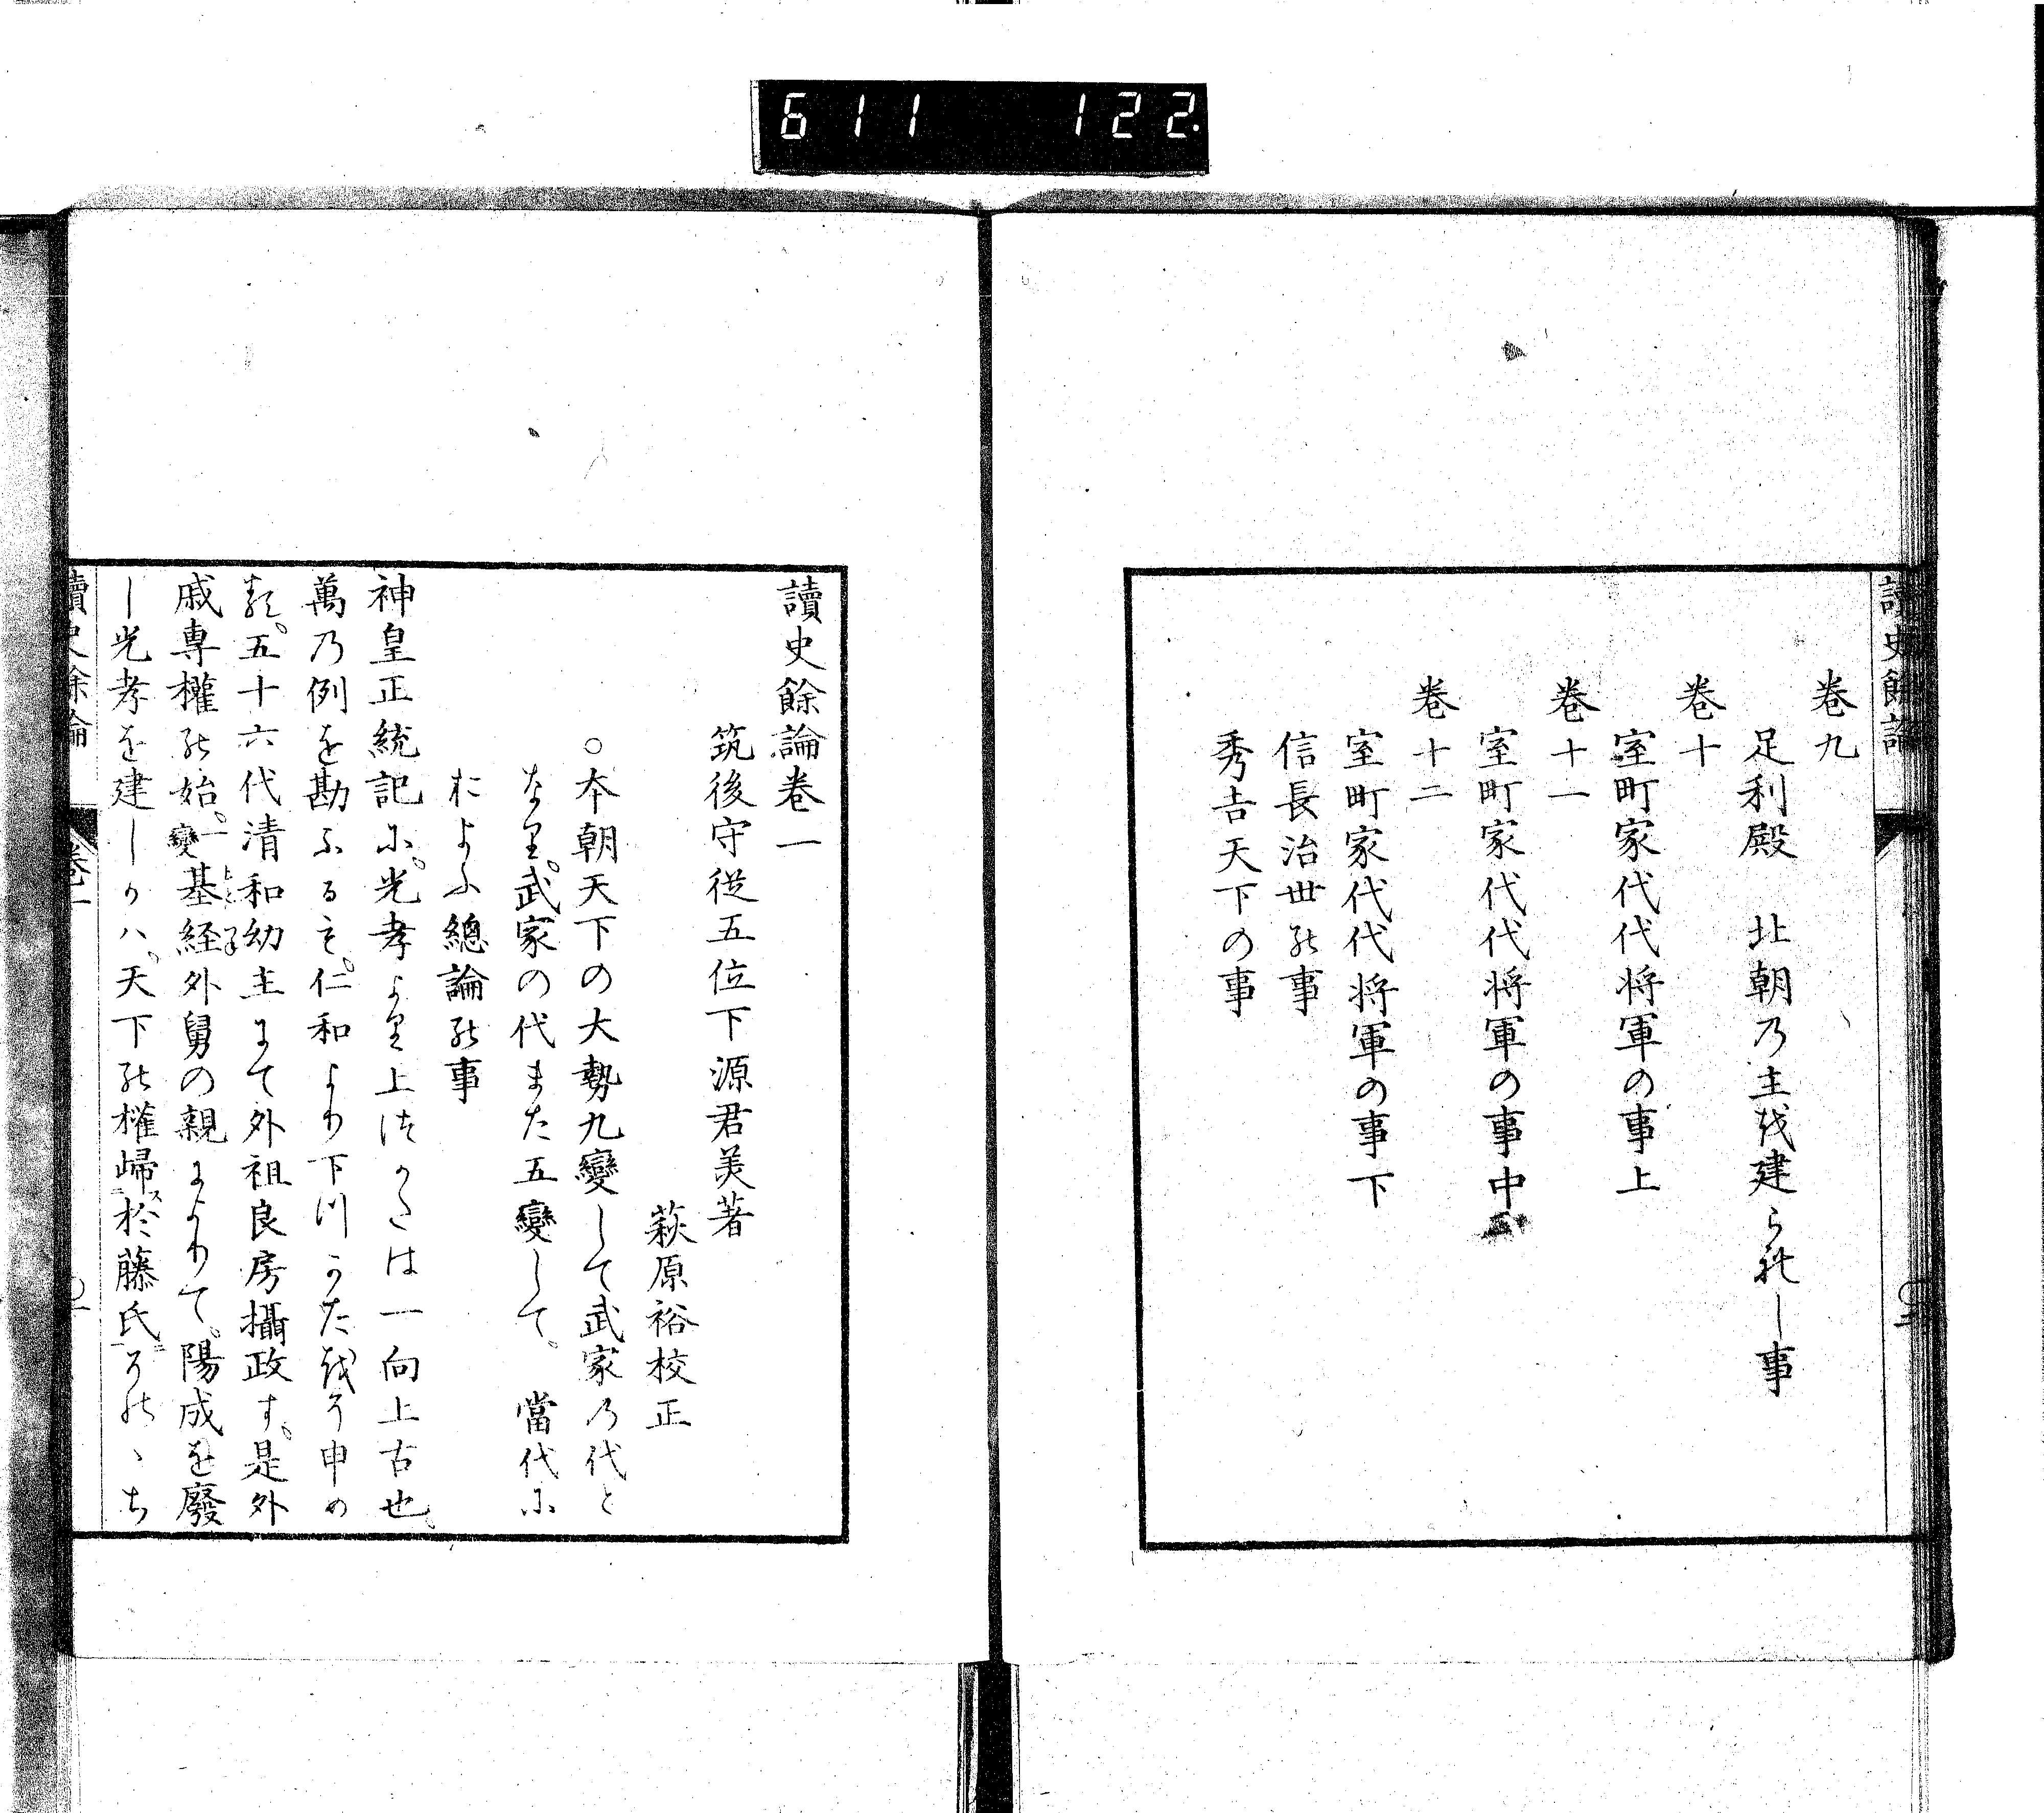 611 122.
讀史餘論
巻九
足利殿 北朝乃主越建られし事
巻十
室町家代代将軍の事上
巻十一
室町家代代将軍の事中
巻十二
室町家代代将軍の事下
信長治世能事
秀吉天下の事
〇二
讀史餘論巻一
筑後守従五位下源君美著
萩原裕校正
○本朝天下の大勢九變して武家乃代と
なり。武家の代また五變して。當代に
およふ總論能事
神皇正統記に。光孝より上つかたは一向上古也。
萬乃例を勘ふるも。仁和より下つかた越そ申め
る。五十六代清和幼主にて外祖良房攝政す。是外
戚専權能始。一變基経外舅の親によりて。陽成を廢
し光孝を建しかハ。天下能權歸ス於藤氏そ能ゝち
讀史餘論 巻一 〇一